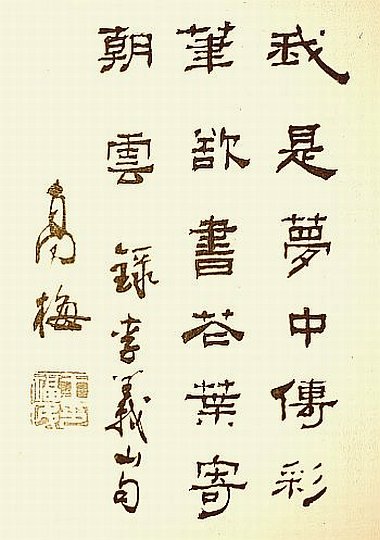 我是夢中傳彩
筆欲書花葉寄
朝雲
錄李義山句
高梅